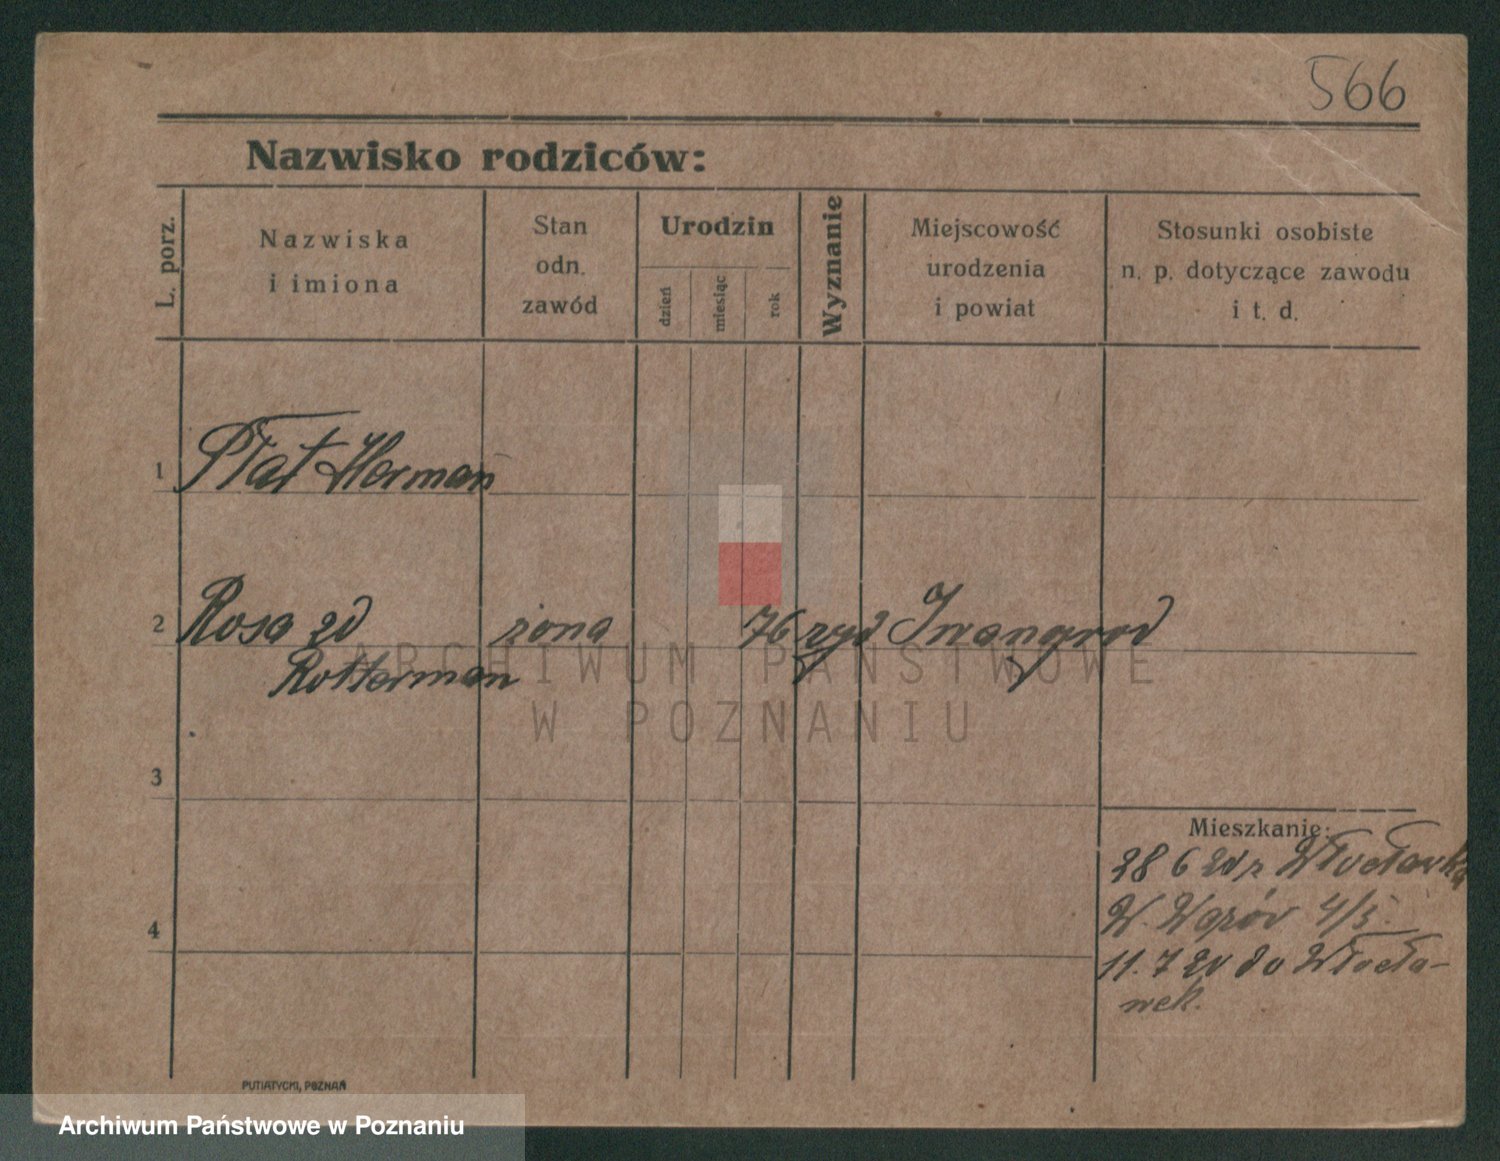 566
Nazwisko rodziców:
L. porz.
Nazwiska
i imiona
Stan
odn.
zawód
Urodzin
dzień
miesiąc
rok
Wyznanie
Miejscowość
urodzenia
i powiat
Stosunki osobiste
n. p. dotyczące zawodu
i t. d.
1 Płat Herman
2 Rosa zd żona 76 żyd Iwangrod
Rotterman
ARCHIWUM PAŃSTWOWE
W POZNANIU
3
4
Mieszkanie:
28 6 20 z Włocławka
W. 4/5.
11. 7 20 do Włocła-
wek.
PUTIATYCKI, POZNAŃ
Archiwum Państwowe w Poznaniu